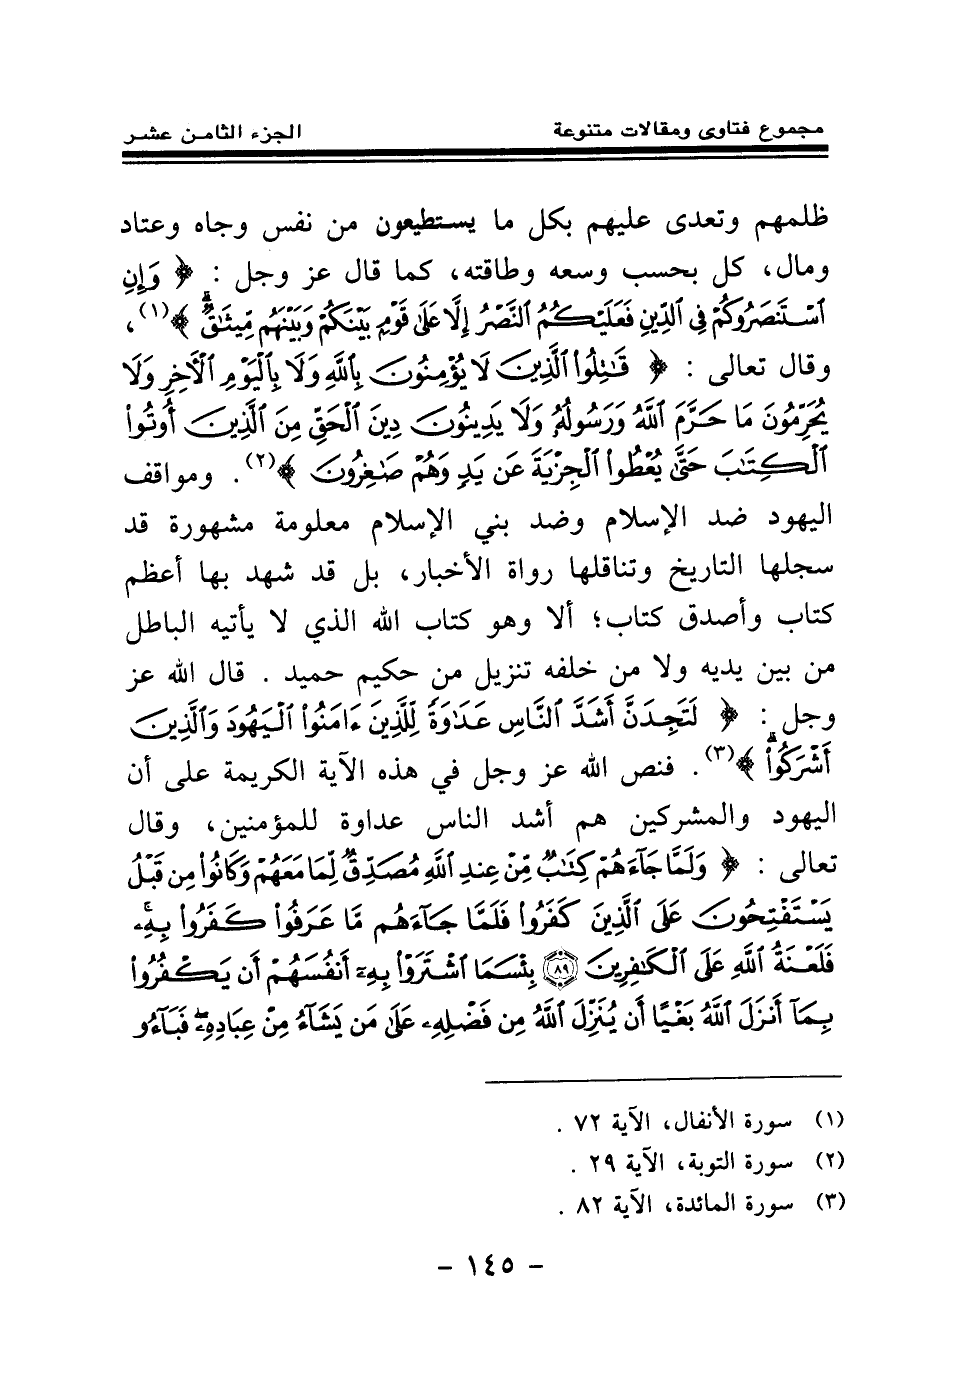 مجموع فتاوى ومقالات متنوعة الجزء الثامن عشر
ظلمهم وتعدى عليهم بكل ما يستطيعون من نفس وجاه وعتاد
ومال، كل بحسب وسعه وطاقته، كما قال عز وجل : ﴿ وَإِنِ
ٱسْتَنصَرُوكُمْ فِى ٱلدِّينِ فَعَلَيْكُمُ ٱلنَّصْرُ إِلَّا عَلَىٰ قَوْمٍۭ بَيْنَكُمْ وَبَيْنَهُم مِّيثَـٰقٌ ۗ ﴾(١)،
وقال تعالى : ﴿ قَـٰتِلُوا۟ ٱلَّذِينَ لَا يُؤْمِنُونَ بِٱللَّهِ وَلَا بِٱلْيَوْمِ ٱلْـَٔاخِرِ وَلَا
يُحَرِّمُونَ مَا حَرَّمَ ٱللَّهُ وَرَسُولُهُۥ وَلَا يَدِينُونَ دِينَ ٱلْحَقِّ مِنَ ٱلَّذِينَ أُوتُوا۟
ٱلْكِتَـٰبَ حَتَّىٰ يُعْطُوا۟ ٱلْجِزْيَةَ عَن يَدٍ وَهُمْ صَـٰغِرُونَ ﴾(٢) . ومواقف
اليهود ضد الإسلام وضد بني الإسلام معلومة مشهورة قد
سجلها التاريخ وتناقلها رواة الأخبار، بل قد شهد بها أعظم
كتاب وأصدق كتاب؛ ألا وهو كتاب الله الذي لا يأتيه الباطل
من بين يديه ولا من خلفه تنزيل من حكيم حميد . قال الله عز
وجل : ﴿ لَتَجِدَنَّ أَشَدَّ ٱلنَّاسِ عَدَٰوَةً لِّلَّذِينَ ءَامَنُوا۟ ٱلْيَهُودَ وَٱلَّذِينَ
أَشْرَكُوا۟ ۖ ﴾(٣) . فنص الله عز وجل في هذه الآية الكريمة على أن
اليهود والمشركين هم أشد الناس عداوة للمؤمنين، وقال
تعالى : ﴿ وَلَمَّا جَآءَهُمْ كِتَـٰبٌ مِّنْ عِندِ ٱللَّهِ مُصَدِّقٌ لِّمَا مَعَهُمْ وَكَانُوا۟ مِن قَبْلُ
يَسْتَفْتِحُونَ عَلَى ٱلَّذِينَ كَفَرُوا۟ فَلَمَّا جَآءَهُم مَّا عَرَفُوا۟ كَفَرُوا۟ بِهِۦ ۚ
فَلَعْنَةُ ٱللَّهِ عَلَى ٱلْكَـٰفِرِينَ ٨٩ بِئْسَمَا ٱشْتَرَوْا۟ بِهِۦٓ أَنفُسَهُمْ أَن يَكْفُرُوا۟
بِمَآ أَنزَلَ ٱللَّهُ بَغْيًا أَن يُنَزِّلَ ٱللَّهُ مِن فَضْلِهِۦ عَلَىٰ مَن يَشَآءُ مِنْ عِبَادِهِۦ ۖ فَبَآءُو
(١) سورة الأنفال، الآية ٧٢ .
(٢) سورة التوبة، الآية ٢٩ .
(٣) سورة المائدة، الآية ٨٢ .
- ١٤٥ -